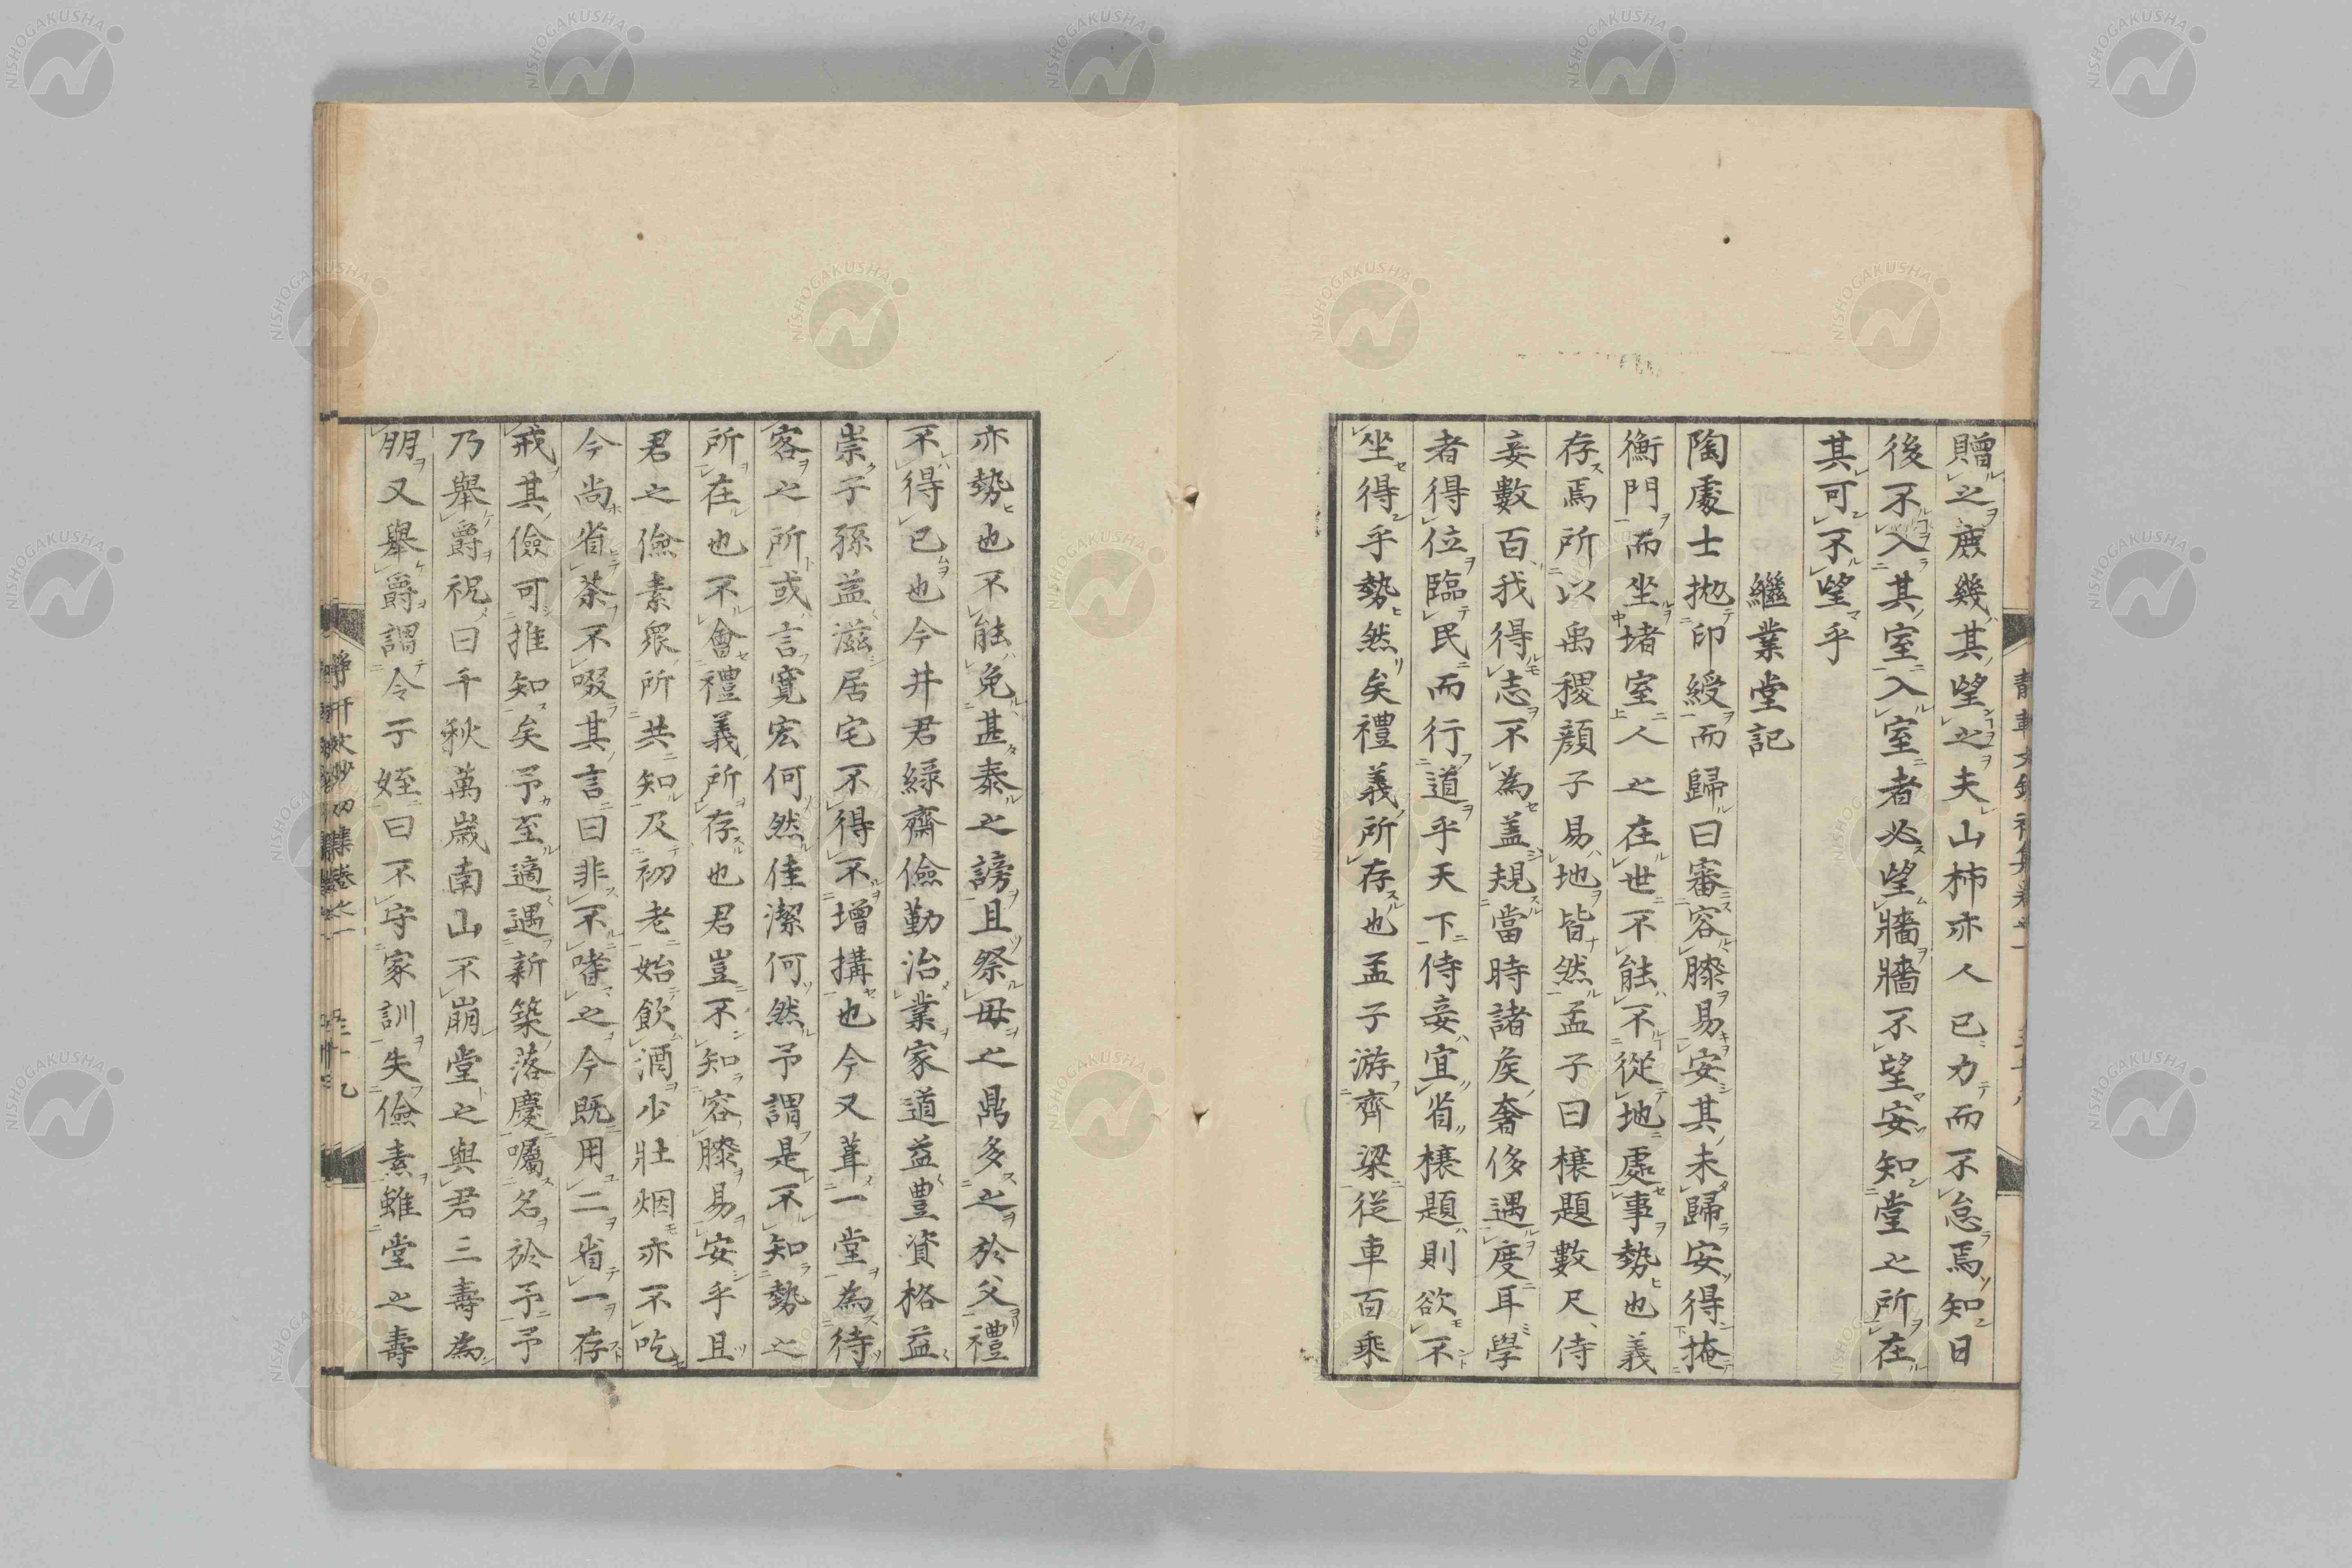 贈之鹿幾其望之夫山柿亦人已力而不怠焉知日
後不入其室入室者必望牆牆不望安知堂之所在
其可不望乎
繼業堂記
陶處士抛印綬而歸曰審容膝易安其未歸安得掩
衡門而坐堵室人之在世不能不從地處事勢也義
存焉所以禹稷顏子易地皆然孟子曰榱題數尺侍
妾數百我得志不為蓋規當時諸矦奢侈遇度耳學
者得位臨民而行道乎天下侍妾宜省榱題則欲不
坐得乎勢然矣禮義所存也孟子游齊梁從車百乘
亦勢也不能免甚泰之謗且祭毋之鼎多之於父禮
不得已也今井君綠齋儉勤治業家道益豐資格益
崇子孫益滋居宅不得不增搆也今又葺一堂為待
客之所或言寬宏何然佳潔何然予謂是不知勢之
所在也不會禮義所存也君豈不知容膝易安乎且
君之儉素衆所共知及初老始飲酒少壯烟亦不吃
今尚省茶不啜其言曰非不嗜之今既用二省一存
戒其儉可推知矣予至適遇新築落慶囑名於予予
乃舉爵祝曰千秋萬歲南山不崩堂之與君三壽為
朋又舉爵謂令子姪曰不守家訓失儉素雖堂之壽